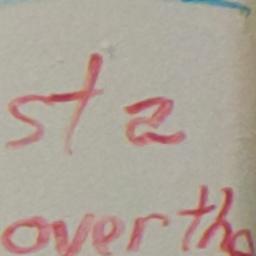 st a
over tha